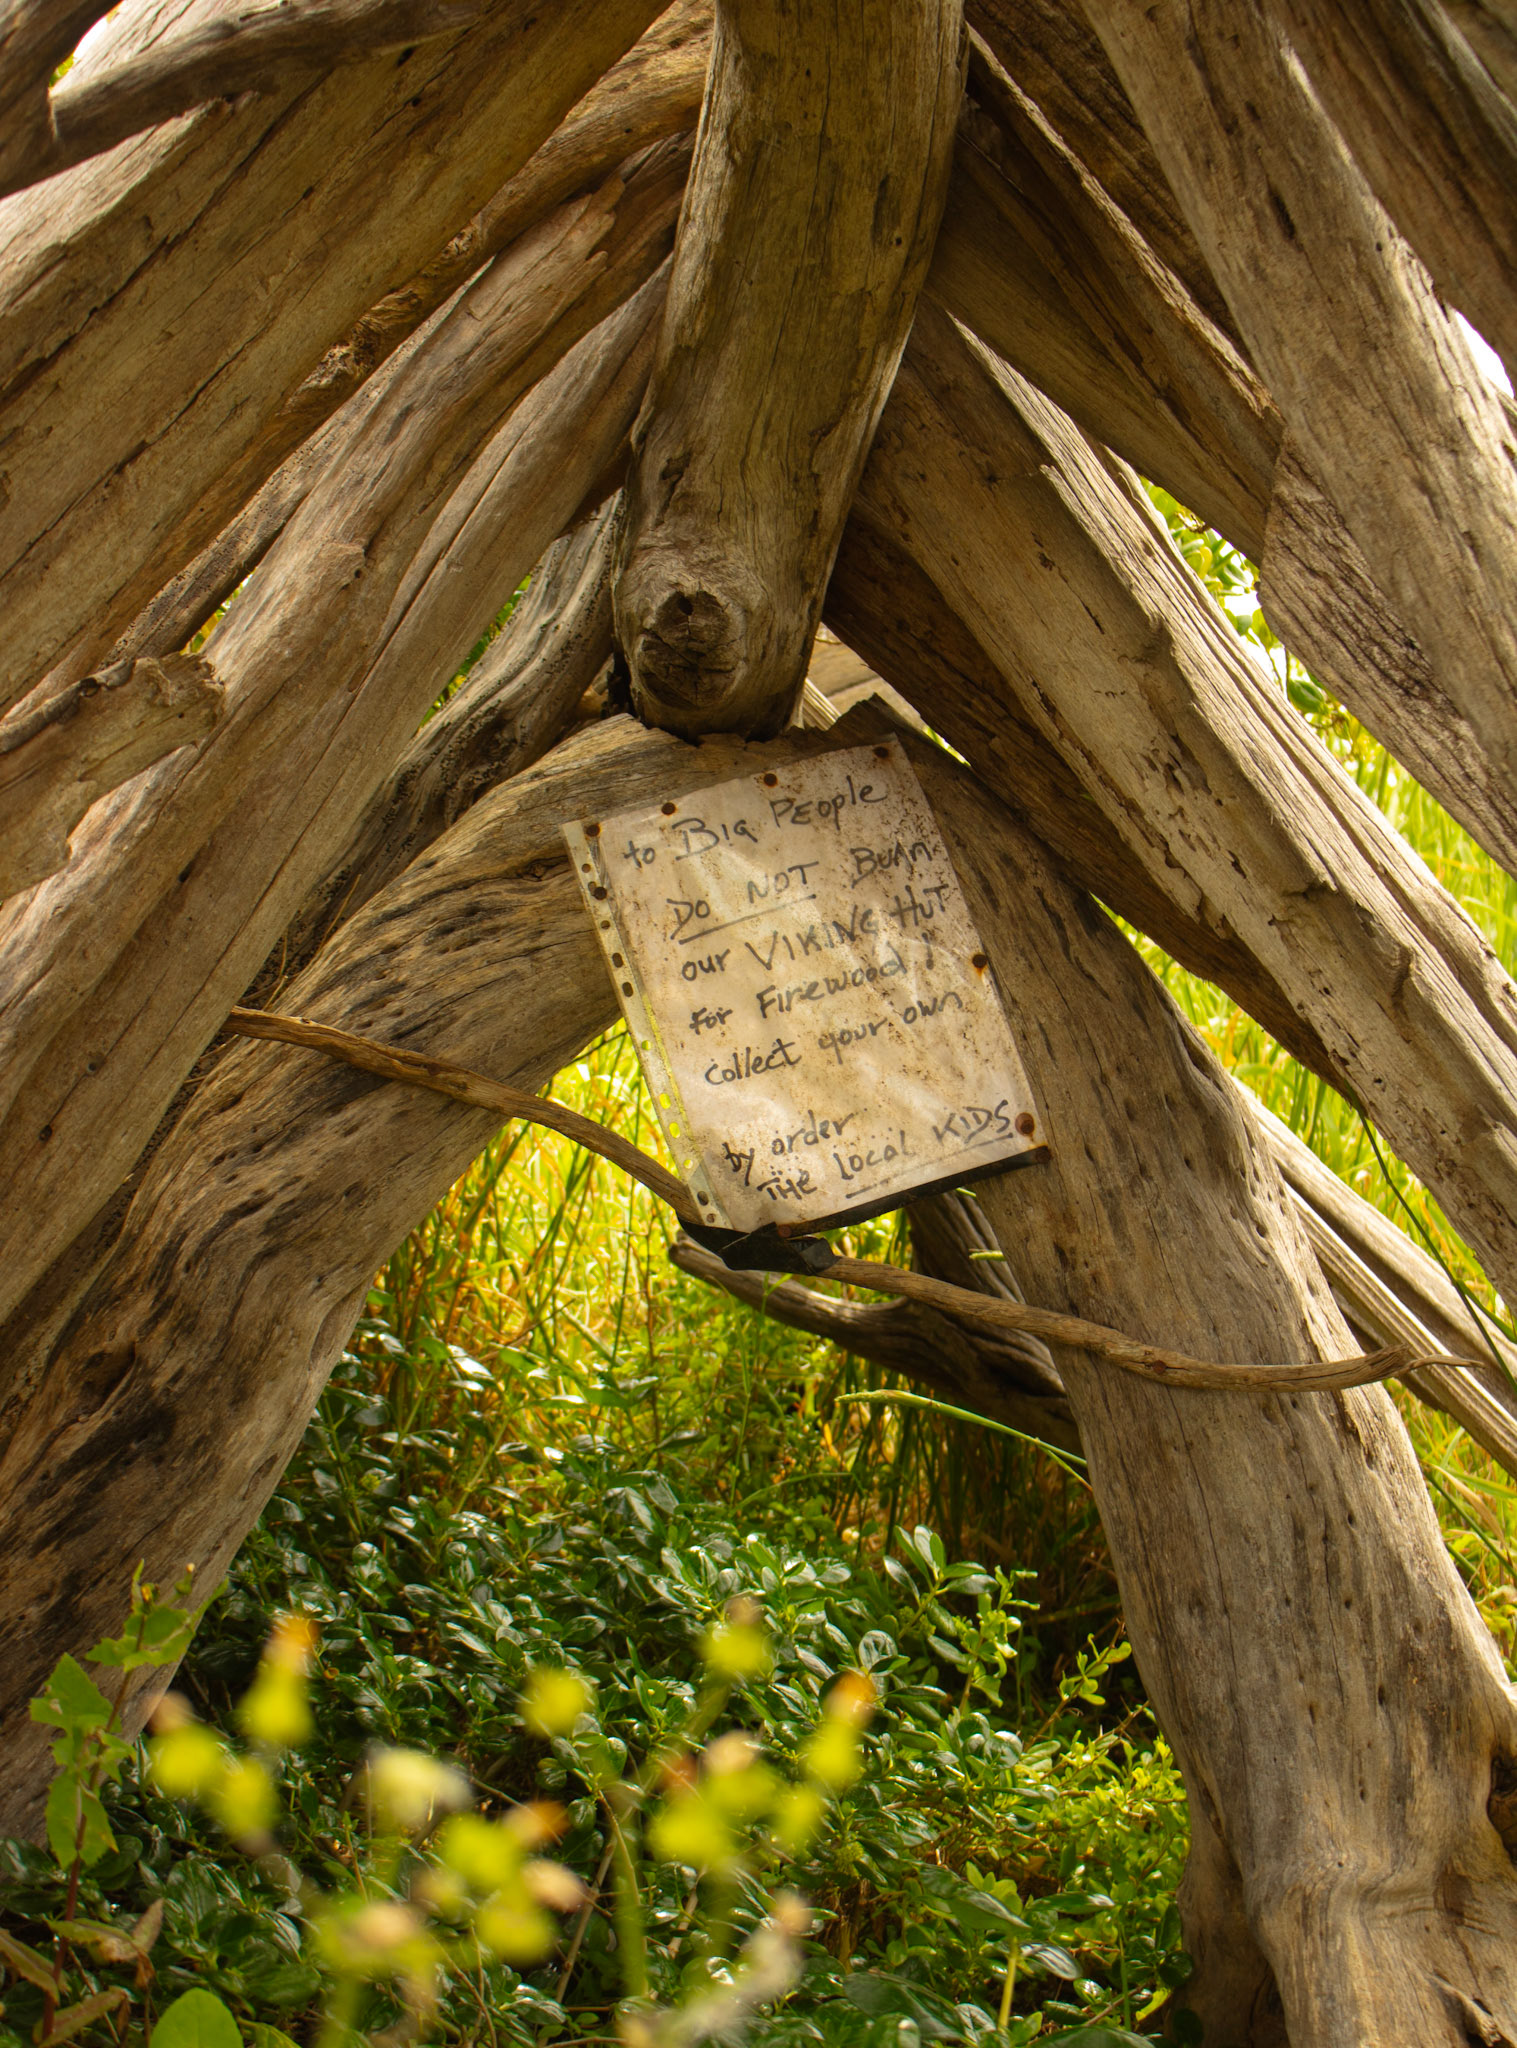 to BIG PEOPle
DO NOT BURN
our VIKING HUT
for Firewood!
collect your own
by order
THE Local KIDS